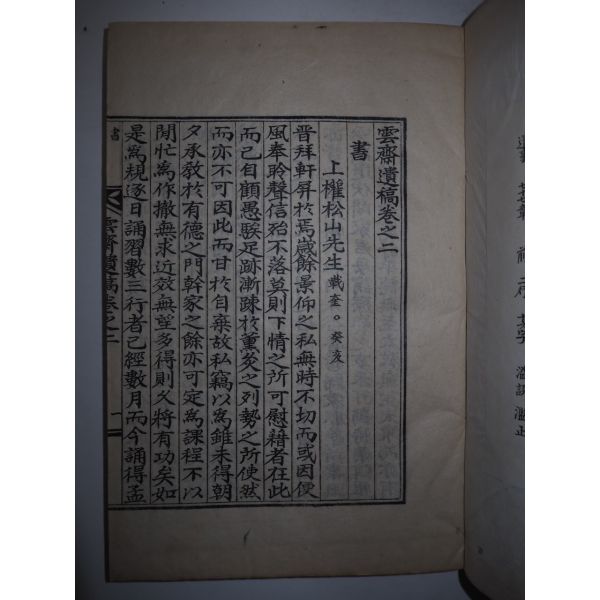 雲齋遺稿卷之二
書
上權松山先生 載奎○癸亥
晋拜軒屏於焉歲餘景仰之私無時不切而或因便
風奉聆聲信殆不落莫則下情之所可慰藉者在此
而已自顧愚騃足跡漸踈於薰炙之列勢之所使然
而亦不可因此而甘於自棄故私竊以爲雖未得朝
夕承教於有德之門幹家之餘亦可定爲課程不以
閒忙爲作撤無求近效無望多得則久將有功矣如
是爲規逐日誦習數三行者已經數月而今誦得孟
書
雲齋遺稿卷之二
一